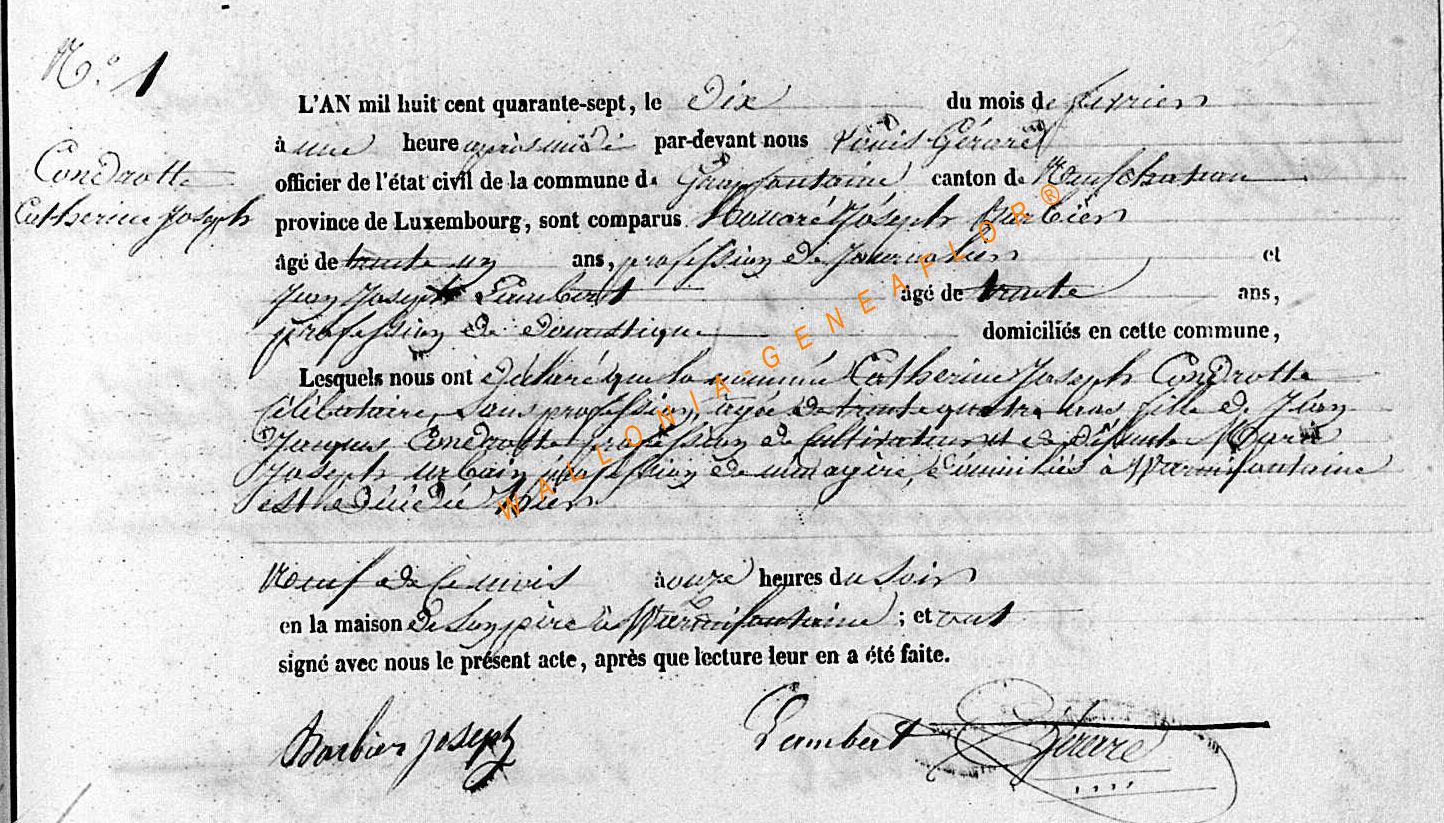 N.° 1
Condrotte
Catherine Joseph
L'AN mil huit cent quarante-sept, le Dix du mois de fevrier
à une heure après midi par-devant nous Louis Gérard
officier de l'état civil de la commune de Grapfontaine canton de Neufchateau
province de Luxembourg, sont comparus Honoré Joseph Barbier
âgé de trente un ans, profession de Journalier et
Jean Joseph Lambert âgé de trente ans,
profession de domestique domiciliés en cette commune,
Lesquels nous ont déclaré que la nommée Catherine Joseph Condrotte
Célibataire, sans profession, agée de trente quatre ans fille de Jean
Jacques Condrotte profession de Cultivateur et de défunte Marie
Joseph urbain profession de ménagère, domiciliés à Warmifontaine
est décédée hier
Neuf de ce mois à onze heures du soir
en la maison de son père à Warmifontaine ; et ont
signé avec nous le présent acte, après que lecture leur en a été faite.
Barbier joseph Lambert Gérard
WALLONIA-GENEAFLOR®